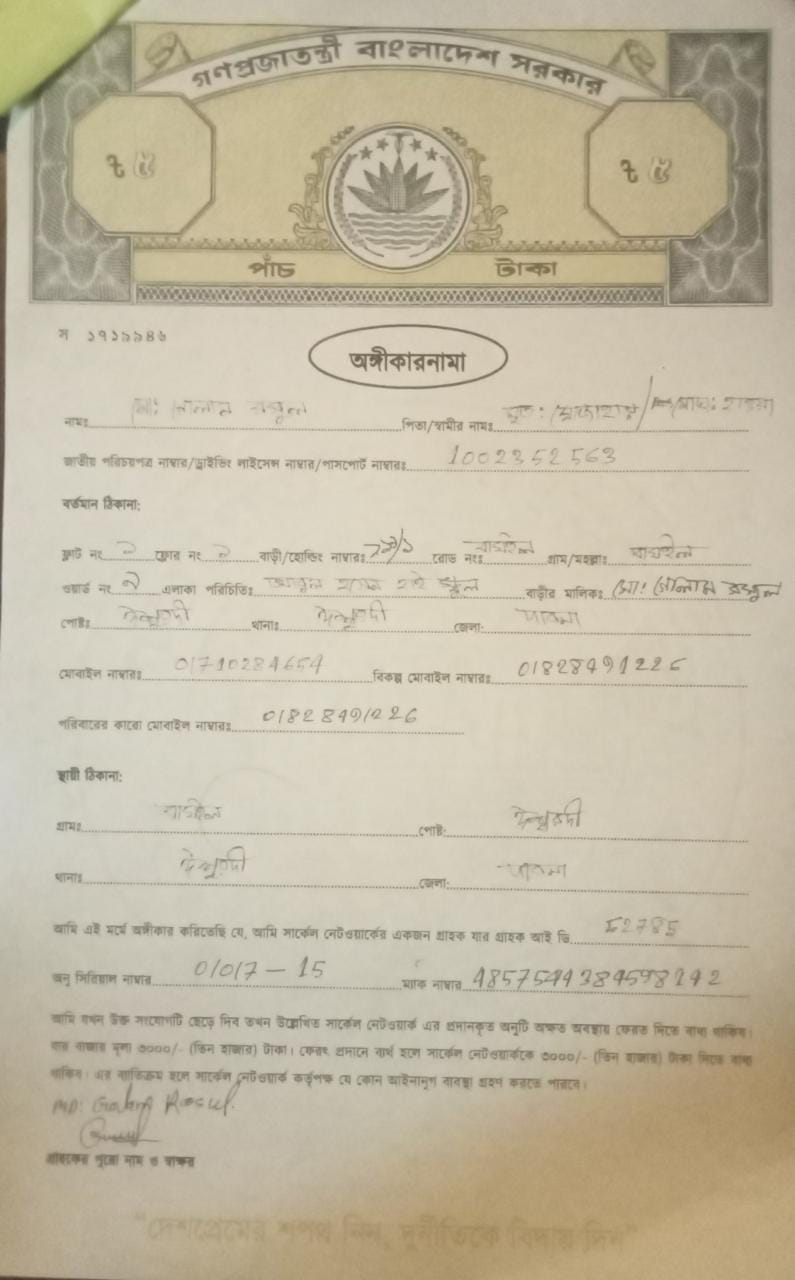 গণপ্রজাতন্ত্রী বাংলাদেশ সরকার
৳ ৫ ৳ ৫
পাঁচ টাকা
অঙ্গীকারনামা
নামঃ মো: গোলাম রসুল পিতা/স্বামীর নামঃ মৃত:
জাতীয় পরিচয়পত্র নাম্বার/ড্রাইভিং লাইসেন্স নাম্বার/পাসপোর্ট নাম্বারঃ 1002352563
বর্তমান ঠিকানা:
ফ্লাট নং ফ্লোর নং বাড়ী/হোল্ডিং নাম্বারঃ রোড নংঃ গ্রাম/মহল্লাঃ
ওয়ার্ড নং এলাকা পরিচিতিঃ স্কুল বাড়ীর মালিকঃ মো: গোলাম রসুল
পোষ্টঃ ঈশ্বরদী থানাঃ ঈশ্বরদী জেলা: পাবনা
মোবাইল নাম্বারঃ 01710284654 বিকল্প মোবাইল নাম্বারঃ 01828491226
পরিবারের কারো মোবাইল নাম্বারঃ 01828491226
স্থায়ী ঠিকানা:
গ্রামঃ পোষ্ট: ঈশ্বরদী
থানাঃ ঈশ্বরদী জেলা: পাবনা
আমি এই মর্মে অঙ্গীকার করিতেছি যে, আমি সার্কেল নেটওয়ার্কের একজন গ্রাহক যার গ্রাহক আই ডি 52785
অনু সিরিয়াল নাম্বার 01017-15 ম্যাক নাম্বার 4857544384598142
আমি যখন উক্ত সংযোগটি ছেড়ে দিব তখন উল্লেখিত সার্কেল নেটওয়ার্ক এর প্রদানকৃত অনুটি অক্ষত অবস্থায় ফেরত দিতে বাধ্য থাকিব।
যার বাজার মূল্য ৩০০০/- (তিন হাজার) টাকা। ফেরৎ প্রদানে ব্যর্থ হলে সার্কেল নেটওয়ার্ককে ৩০০০/- (তিন হাজার) টাকা দিতে বাধ্য
থাকিব। এর ব্যতিক্রম হলে সার্কেল নেটওয়ার্ক কর্তৃপক্ষ যে কোন আইনানুগ ব্যবস্থা গ্রহণ করতে পারবে।
MD: Golam Rosul.
গ্রাহকের পুরো নাম ও স্বাক্ষর
"দেশপ্রেমের শপথ নিন, দুর্নীতিকে বিদায় দিন"